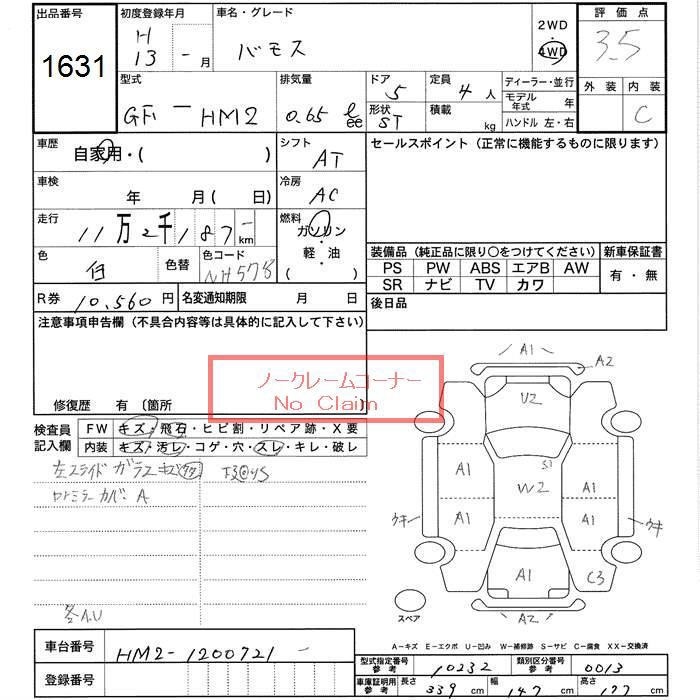 出品番号 1631
初度登録年月 H 13 - 月
車名・グレード バモス
2WD 4WD
評価点 3.5
外装 内装 C
型式 GF - HM2
排気量 0.65 ℓ cc
ドア 5
形状 ST
定員 4 人
積載 kg
ディーラー・並行
モデル年式 年
ハンドル 左・右
車歴 自家用・( )
シフト AT
セールスポイント (正常に機能するものに限ります)
車検 年 月 ( 日)
冷房 AC
走行 11万2千187- km
燃料 ガソリン・軽・油 ( )
色 白 色替
色コード NH578
装備品 (純正品に限り○をつけてください)
新車保証書
PS PW ABS エアB AW
SR ナビ TV カワ
有・無
R券 10,560円
名変通知期限 月 日
後日品
注意事項申告欄 (不具合内容等は具体的に記入して下さい)
ノークレームコーナー
No Claim
修復歴 有 〔箇所
検査員記入欄
FW キズ・飛石・ヒビ割・リペア跡・X要
内装 キズ・汚レ・コゲ・穴・スレ・キレ・破レ
左スライドガラスキズ
カバーA
A1
A2
U2
S1
W2
A1
A1
A1
A1
ウキ
ウキ
A1
C3
A2
スペア
A-キズ E-エクボ U-凹み W-補修跡 S-サビ C-腐食 XX-交換済
車台番号 HM2-1200721 -
登録番号
型式指定番号 参考 10232
類別区分番号 参考 0013
車庫証明用 参考 長さ 339 cm 幅 147 cm 高さ 177 cm